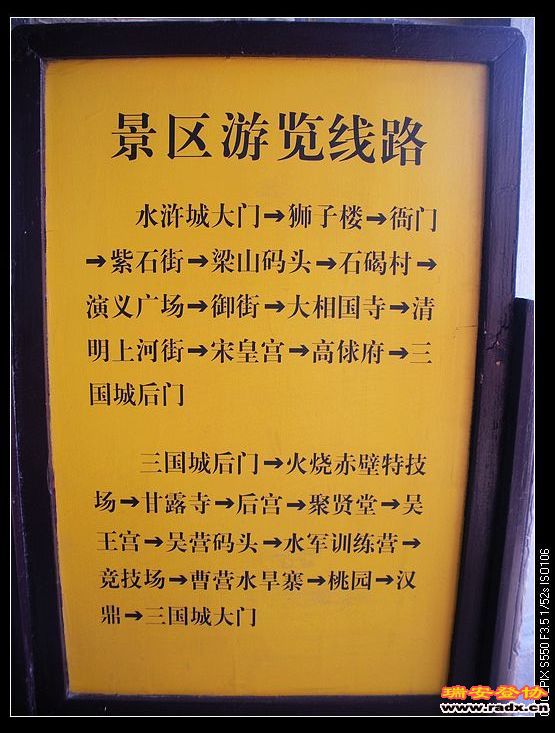 景区游览线路
水浒城大门→狮子楼→衙门
→紫石街→梁山码头→石碣村→
演义广场→御街→大相国寺→清
明上河街→宋皇宫→高俅府→三
国城后门
三国城后门→火烧赤壁特技
场→甘露寺→后宫→聚贤堂→吴
王宫→吴营码头→水军训练营→
竞技场→曹营水旱寨→桃园→汉
鼎→三国城大门
PIX S550 F3.5 1/52s ISO106
瑞安登协
www.radx.cn